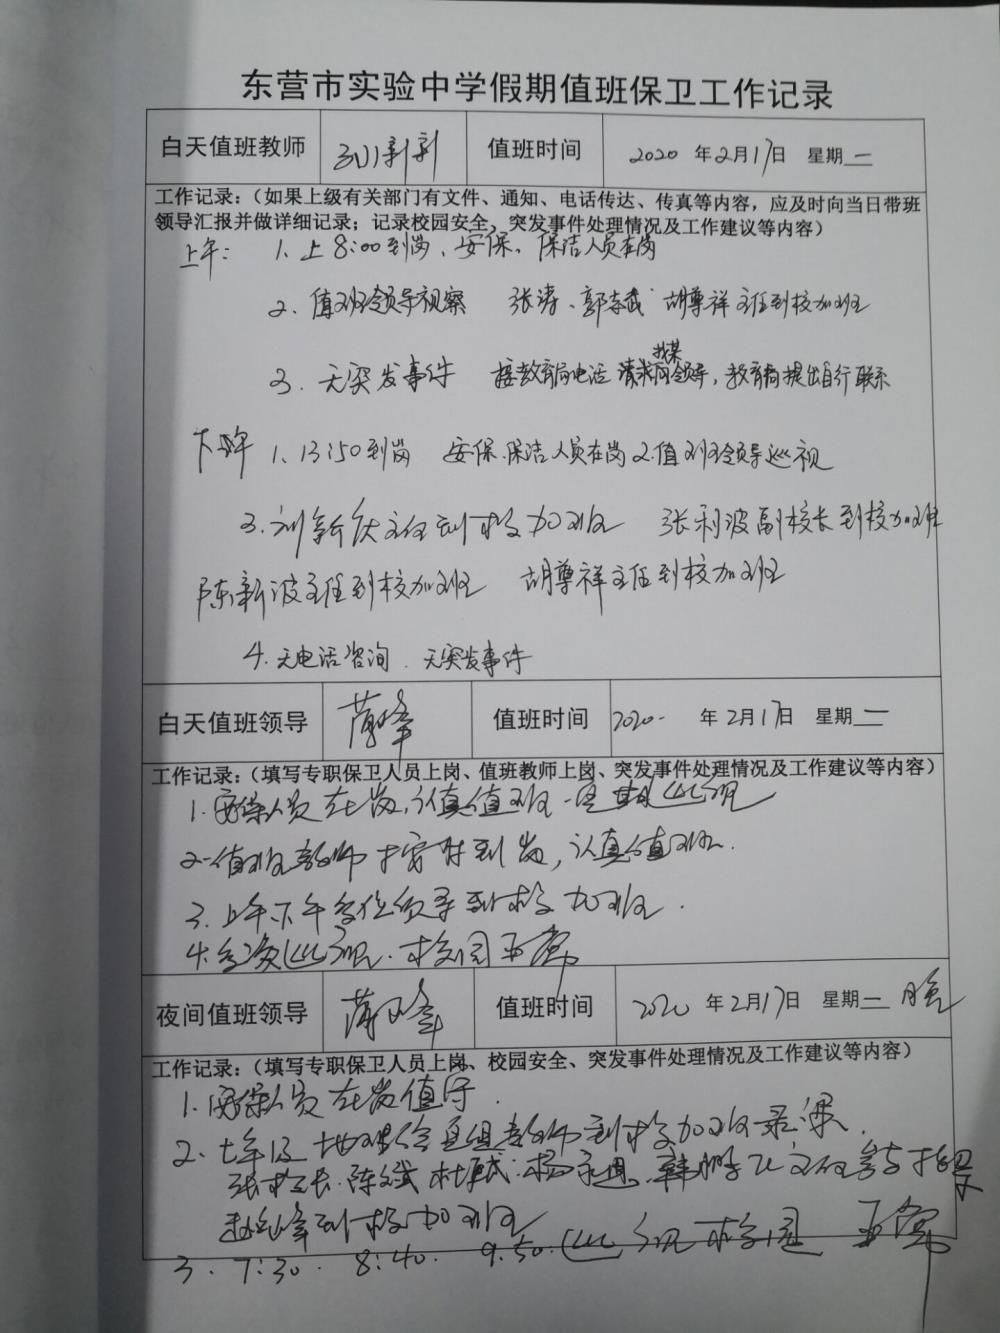 东营市实验中学假期值班保卫工作记录
白天值班教师 值班时间 2020 年2月17日 星期一
工作记录：（如果上级有关部门有文件、通知、电话传达、传真等内容，应及时向当日带班
领导汇报并做详细记录；记录校园安全，突发事件处理情况及工作建议等内容）
上午： 1、上8:00到岗、安保、保洁人员在岗
2、值班领导视察 张涛、郭志武 胡尊祥主任到校加班
3、无突发事件 接教育局电话 请求 领导，教育局提出自行联系
下午 1、13:50到岗 安保、保洁人员在岗 2.值班领导巡视
3.刘新庆主任到校加班 张利波副校长到校加班
陈新波主任到校加班 胡尊祥主任到校加班
4.无电话咨询、无突发事件
白天值班领导 值班时间 2020 年2月17日 星期一
工作记录：（填写专职保卫人员上岗、值班教师上岗、突发事件处理情况及工作建议等内容）
1.安保人员在岗，认真值班 巡视
2.值班教师按时到岗，认真值班.
3.上午下午 到校加班.
4. 巡视.校园正常
夜间值班领导 值班时间 2020 年2月17日 星期一 晚
工作记录：（填写专职保卫人员上岗、校园安全、突发事件处理情况及工作建议等内容）
1.安保人员在岗值守.
2.七年级地理 组教师到校加班录课.
张校长.陈 主任
到校加班
3. 7:30. 8:40. 9:50.巡视校园 正常